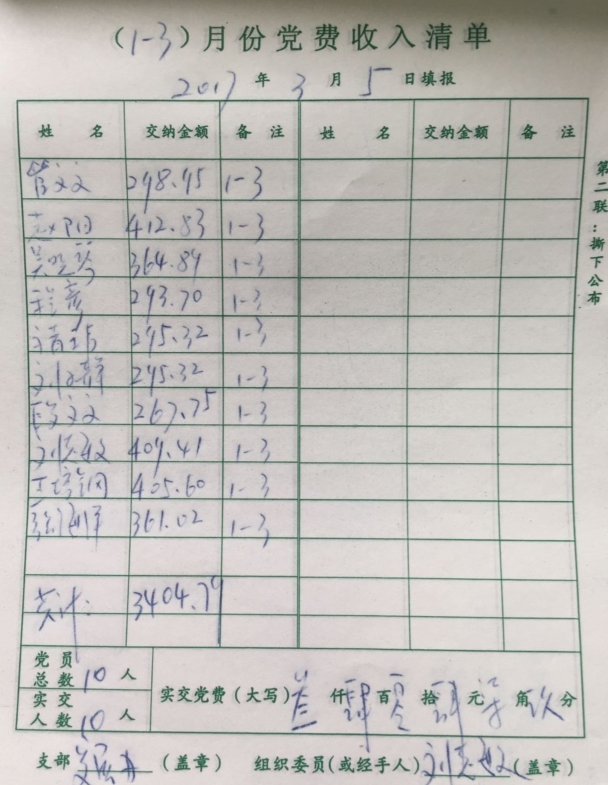 (1-3)月份党费收入清单
2017年3月5日填报
姓 名 交纳金额 备 注 姓 名 交纳金额 备 注
298.95 1-3
412.83 1-3
364.89 1-3
293.70 1-3
295.32 1-3
295.32 1-3
267.75 1-3
409.41 1-3
405.60 1-3
361.02 1-3
共计: 3404.79
党员总数 10 人
实交人数 10 人
实交党费(大写)叁仟肆百零拾肆元柒角玖分
支部 (盖章) 组织委员(或经手人) (盖章)
第二联:撕下公布